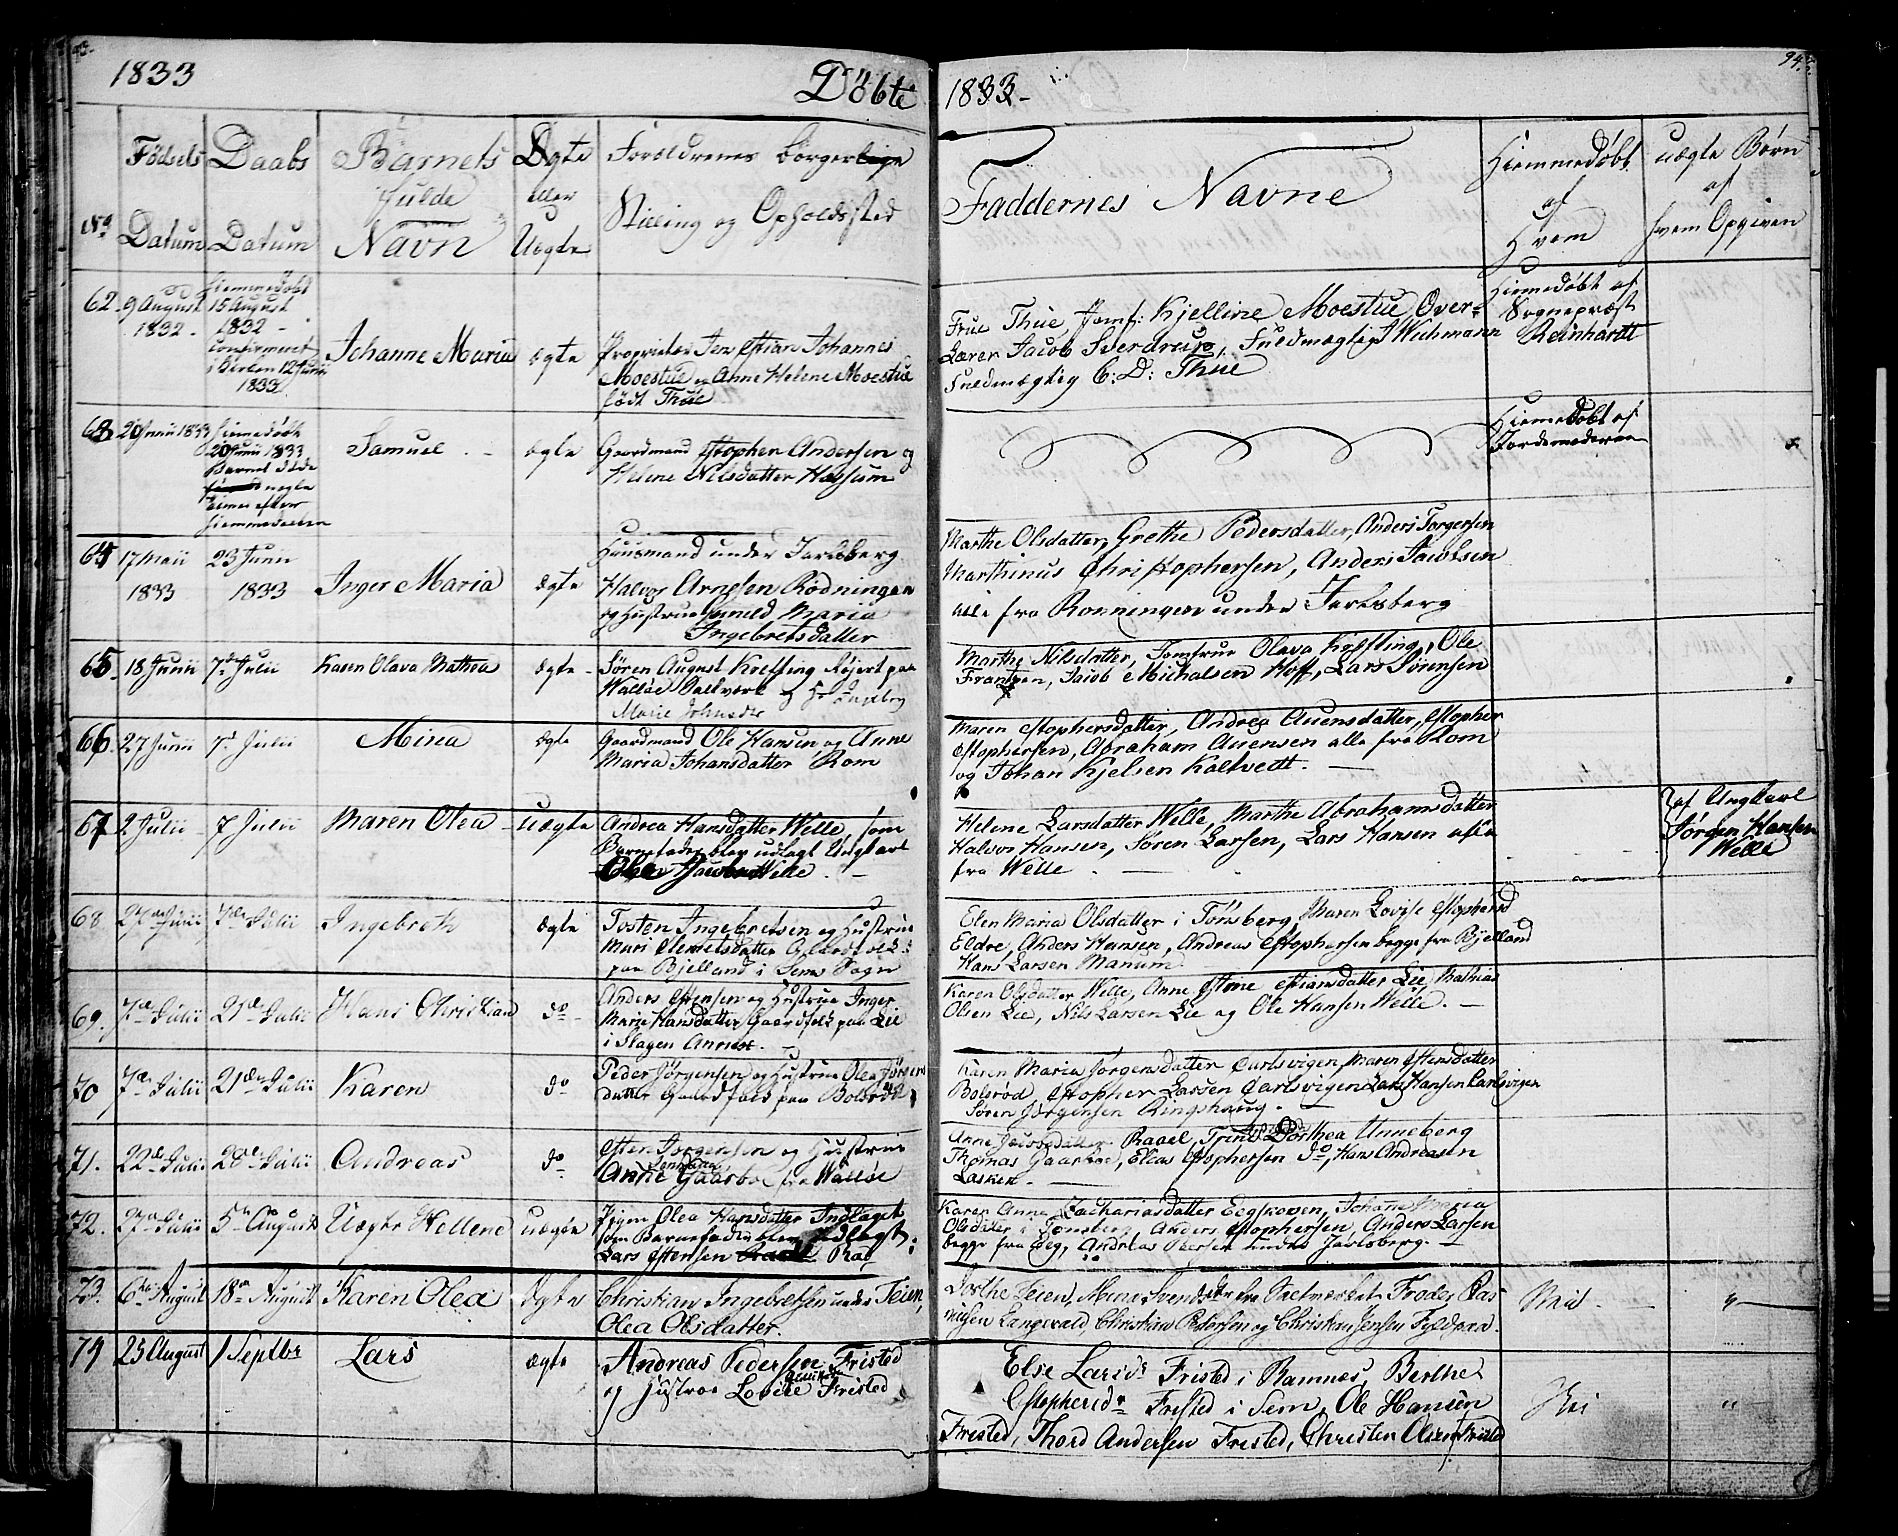 1833
Döbte
1833-
94
Fødsels
Datum
Daabs
Datum
Barnets
fulde
Navn
Ægte
eller
Uægte
Forældrenes borgerlige
Stilling og Opholdssted
Faddernes Navne
Hiemmedøbt
af
Hvem
uægte Børn
af
hvem Opgiven
62. 9 August
1832.
Hiemmedøbt
15 August
1832 -
confirmeret
i Kirken 12 Junii
1833.
Johanne Maria
ægte
Proprietær Jens Christian Johannes
Moestue og Anne Helene Moestue
født Thue
Frue Thue, Jomf: Kjelline Moestue, Over-
Lærer Jacob Sverdrup, Fuldmægtig Wichmann
Fuldmægtig C: D: Thue
Hiemedøbt af
Sognepræst
Reinhardt
63 20 Junii 1833
Hiemedøbt
20 Junii 1833
Barnet døde
nogle
Timer efter
Hiemmedaaben
Samuel
ægte
Gaardmand Cstophen Andersen og
Helene Nilsdatter Hassum
Hiemedøbt af
Jordemoderen
64 17 Maii
1833
23 Junii
1833
Inger Maria
ægte
Huusmand under Jarlsberg
Halvor Arnesen Rødningen
og Hustrue Maria
Ingebretsdatter
Marthe Olsdatter, Grethe Pedersdatter, Anders Torgersen
Marthinus Christophersen, Anders Jacobsen
alle fra Ronningen under Jarlsberg
65. 18 Junii
7de Julii
Karen Olava Mathea
ægte
Søren August Køltzing Rejert paa
Walløe Saltværk og H
Marie Johnsdtr
Marthe Nilsdatter, Jomfrue Olava Køltzing, Ole
Frantzen, Jacob Michalsen Hoff, Lars Sørensen
66. 27 Junii
7de Julii
Mina
ægte
Gaardmand Ole Hansen og Anne
Maria Johansdatter Rom
Maren Cstophersdatter, Andrea Auensdatter, Cstopher
Cstophersen, Abraham Auensen alle fra Rom
og Johan Kjelsen Kaltvedt.
67 2 Julii
7 Julii
Maren Olea
uægte
Andrea Hansdatter Welle, som
Barnefader blev udlagt Ungkarl
Welle.
Helene Larsdatter Welle, Marthe Abrahamsdatter
Halvor Hansen, Søren Larsen, Lars Hansen alle
fra Welle.
af Ungkarl
Jørgen Hansen
Welle
68
7de Julii
Ingebreth
ægte
Tosten Ingebretsen og Hustrue
Mari Clemetsdatter Gaardfolk
paa Bjelland i Sems Sogn
Elen Maria Olsdatter i Tönsberg, Maren Lovise Cstophersd
Eldre, Anders Hansen, Andreas Cstophersen begge fra Bjelland
Hans Larsen Manum
69. 7de Julii
21de Julii
Hans Christian
do
Anders og Hustrue Inger
Marie Hansdatter Gaardfolk paa Lie
i Slagen Annex.
Karen Olsdatter Welle, Anne Cstine Cstiansdatter Lie, Mathias
Olsen Lie, Nils Larsen Lie og Ole Hansen Welle.
70 7de Julii
21de Julii
Karen
do
Peder Jörgensen og Hustrue Olea Jörgens
datter Gaardfolk paa Bolsröd
Karen Maria Jörgensdatter Carlsvigen, Maren Cstensdatter
Bolsröd, Cstopher Larsen Carlsvigen Lars Hansen Carlsvigen
Sören Jörgensen Ringshaug.
71. 22de Julii
28de Julii
Andreas
do
Csten Jørgensen og Hustrue
Anne Gaarboe fra Walløe
Anne Jacobsdatter Raael, Trine Dorthea Unneberg
Thomas Gaarboe, Elias Cstophersen do, Hans Andreasen
Lasken.
72. 27de Julii
5te August
Uægte Hellene
uægte
Pigen Olea Hansdatter Indlaget
som Barnefader blev udlagt:
Lars Cstensen Raa
Karen Anne Zachariasdatter Eegskoven, Johanne Maria
Olsdatter i Tønsberg, Anders Cstophersen, Anders Larsen
begge fra Eeg, Andreas Persen under Jarlsberg.
73. 6te August
18de August
Karen Olea
Ægte
Christian Ingebretsen under Teien,
Olea Olsdatter.
Dorthe Teien, Mina Svendsdatter fra Frode Ras
musen Langevald, Christian Pedersen og Christian Jensen
Nei
"
74 25 August
1 Septbr
Lars
ægte
Andreas Pedersen Fristed
og Hustroe Lovise Fristed
Else Larsdr Fristed i Ramnes, Berthe
Cstophersdr Fristed i Sem, Ole Hansen
Fristed, Thord Andersen Fristed, Christen Olsen Fristed
Nei
"